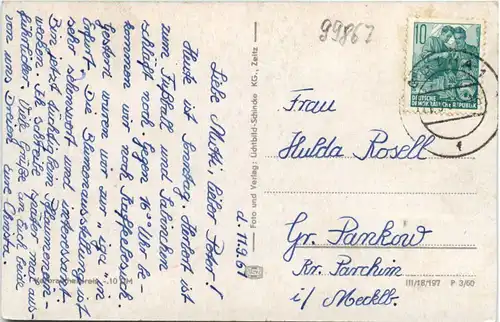 99867
d. 11.9.61
Liebe Mutti, lieber Peter!
Heute ist Sonntag. Herbert ist
zum Fußball und Katrinchen
schläft noch. Gegen 16° Uhr be-
kommen wir noch Kaffeebesuch.
Gestern waren wir zur „iga" in
Erfurt. Die Blumenausstellung ist
sehr sehenswert und interessant.
Bin jetzt tüchtig beim Pflaumenein-
wecken. Ich schreibe später mal aus-
führlicher. Viele Grüße an Euch beide
von uns Dreien eure Christa.
Foto und Verlag: Lichtbild-Schincke KG., Zeitz
10
DEUTSCHE
DEMOKRATISCHE REPUBLIK
Frau
Hulda Rosell
Gr. Pankow
Kr. Parchim
i/ Mecklb.
III/18/197 P 3/60